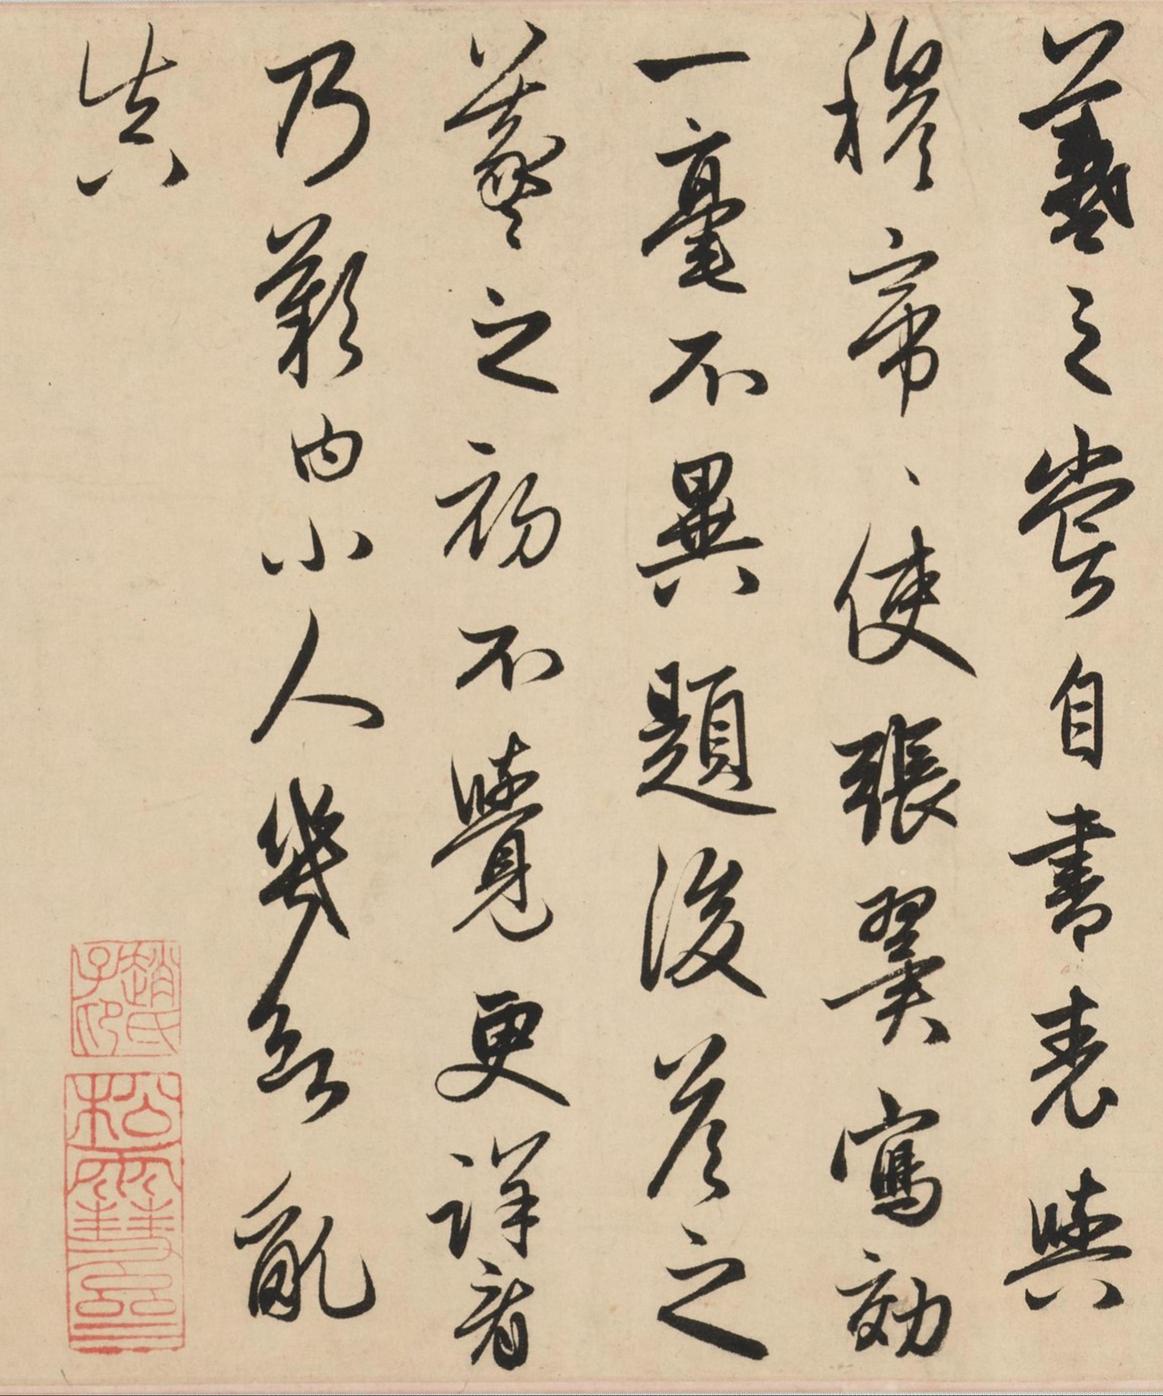 羲之嘗自書表與
穆帝、使張翼寫効
一毫不異題後答之
羲之初不覺更詳看
乃歎曰小人幾欲亂
真
趙氏子昂
松雪齋